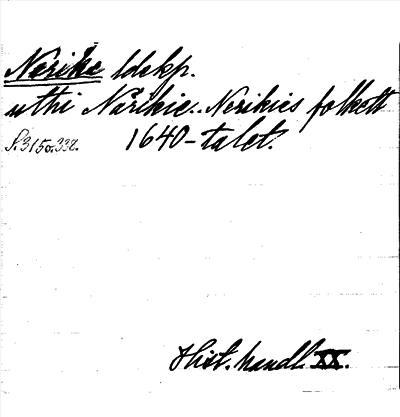 Nerike ldskp.
uthi Närikie.. Nerikies folkett
S. 315 o. 332. 1640-talet.
Hist. handl. XX.